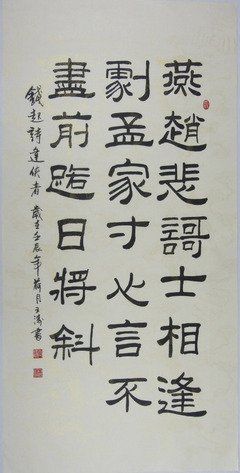 燕趙悲謌士相逢
劇孟家寸心言不
盡前路日將斜
錢起詩逢俠者 歲在壬辰年荷月王書